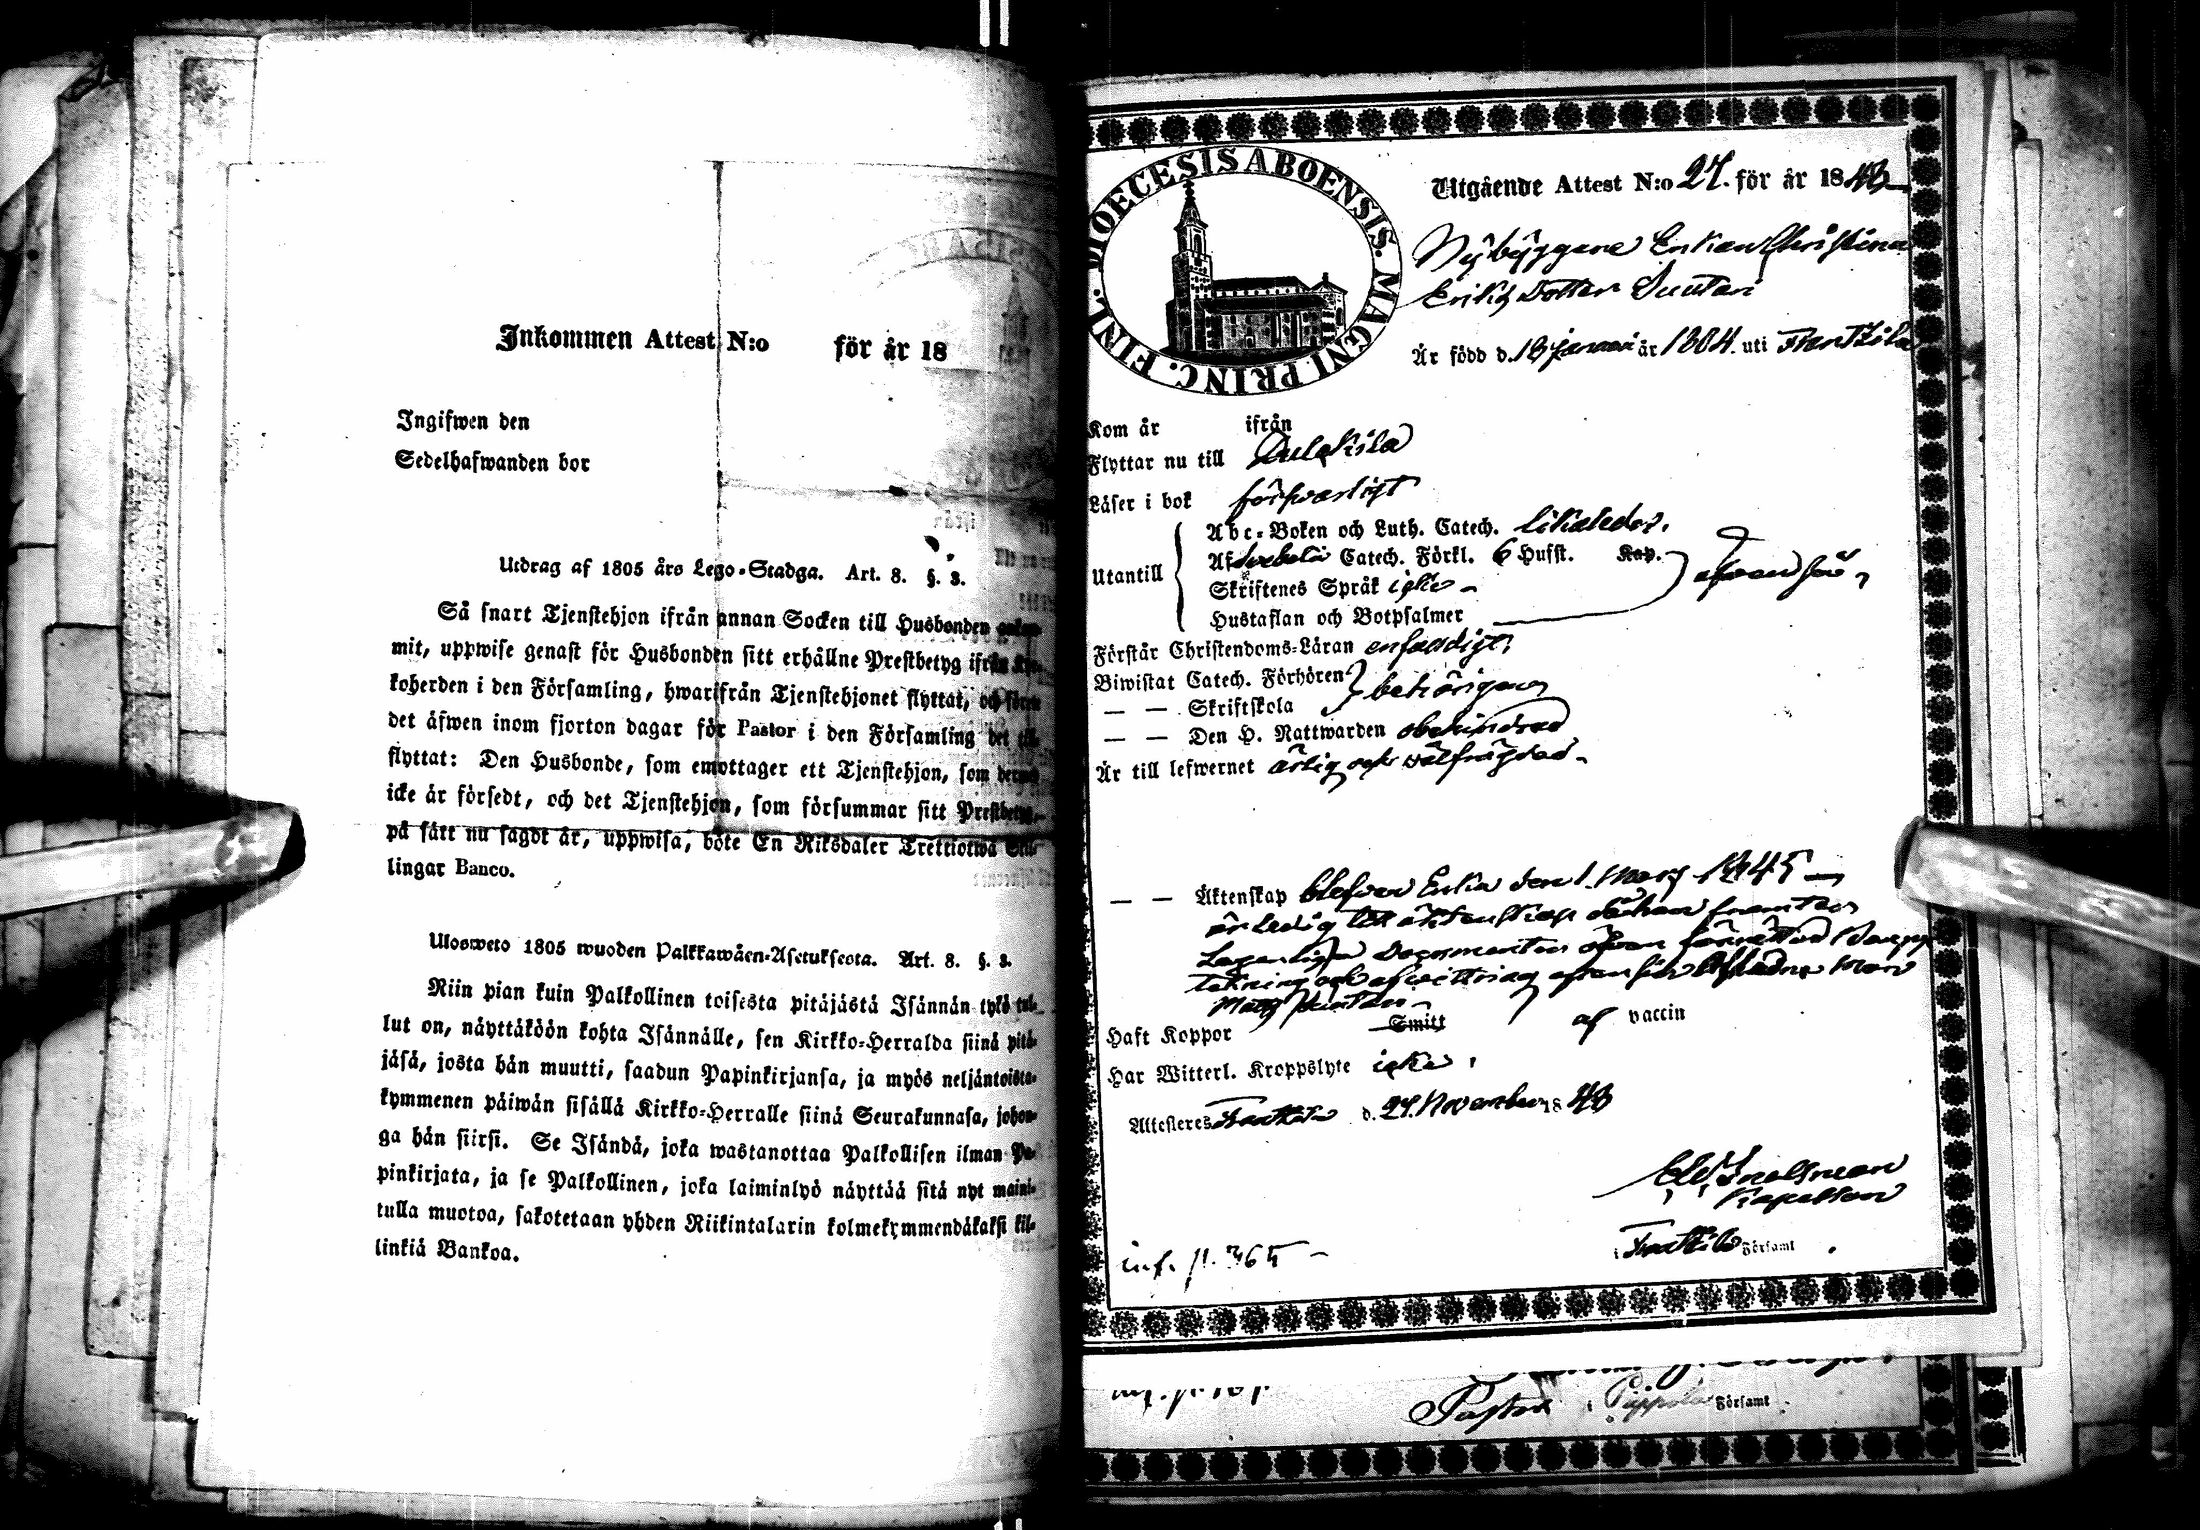 Inkommen Attest N:o för år 18
Ingifwen den
Sedelhafwanden bor
Utdrag af 1805 års Lego-Stadga. Art. 8. §. 3.
Så snart Tjenstehjon ifrån annan Socken till Husbonden
mit, uppwise genast för Husbonden sitt erhållne Prestbetyg ifrån
koherden i den Församling, hwarifrån Tjenstehjonet flyttat,
det äfwen inom fjorton dagar för Pastor i den Församling det
flyttat: Den Husbonde, som emottager ett Tjenstehjon, som
icke är försedt, och det Tjenstehjon, som försummar sitt
på sätt nu sagdt är, uppwisa, böte En Riksdaler Trettiotwå
lingar Banco.
Ulosweto 1805 wuoden Palkkawäen-Asetuksesta. Art. 8. §. 3.
Niin pian kuin Palkollinen toisesta pitäjästä Isännän tykö tul-
lut on, näyttäköön kohta Isännälle, sen Kirkko-Herralda siinä pitä-
jäsä, josta hän muutti, saadun Papinkirjansa, ja myös neljäntoista-
kymmenen päiwän sisällä Kirkko-Herralle siinä Seurakunnasa, johon-
ga hän siirsi. Se Isändä, joka wastanottaa Palkollisen ilman Pa-
pinkirjata, ja se Palkollinen, joka laiminlyö näyttää sitä nyt maini-
tulla muotoa, sakotetaan yhden Riikintalarin kolmekymmendäkaksi kil-
linkiä Bankoa.
DIOECESIS ABOENSIS. MAGNI PRINC. FINL.
Utgående Attest N:o 27. för år 1848
Nybyggare Enkan Christina
Eriks Dotter Suutari
Är född d. 18 januari år 1804. uti Frantsila
Kom år ifrån
Flyttar nu till Pulkkila
Läser i bok försvarligt
Utantill
Abc-Boken och Luth. Catech. likaledes.
Af Svebelii Catech. Förkl. 6 Hufst. Kap.
Skriftenes Språk icke
Hustaflan och Botpsalmer
Förstår Christendoms-Läran enfaldigt.
Biwistat Catech. Förhören
— — Skriftskola
behörigen
— — Den H. Nattwarden obehindrad
Är till lefwernet ärlig och wälfrägdad
— — Äktenskap blefven Enka den 1. Mars 1845
är ledig till äktenskap
Haft Koppor Smitt af vaccin
Har Witterl. Kroppslyte icke
Attesteres Frantsila d. 27. November 1848
Snellman
Kapellan
i Frantsila Församl
inf. p. 365
Pastor i Piippola Församl